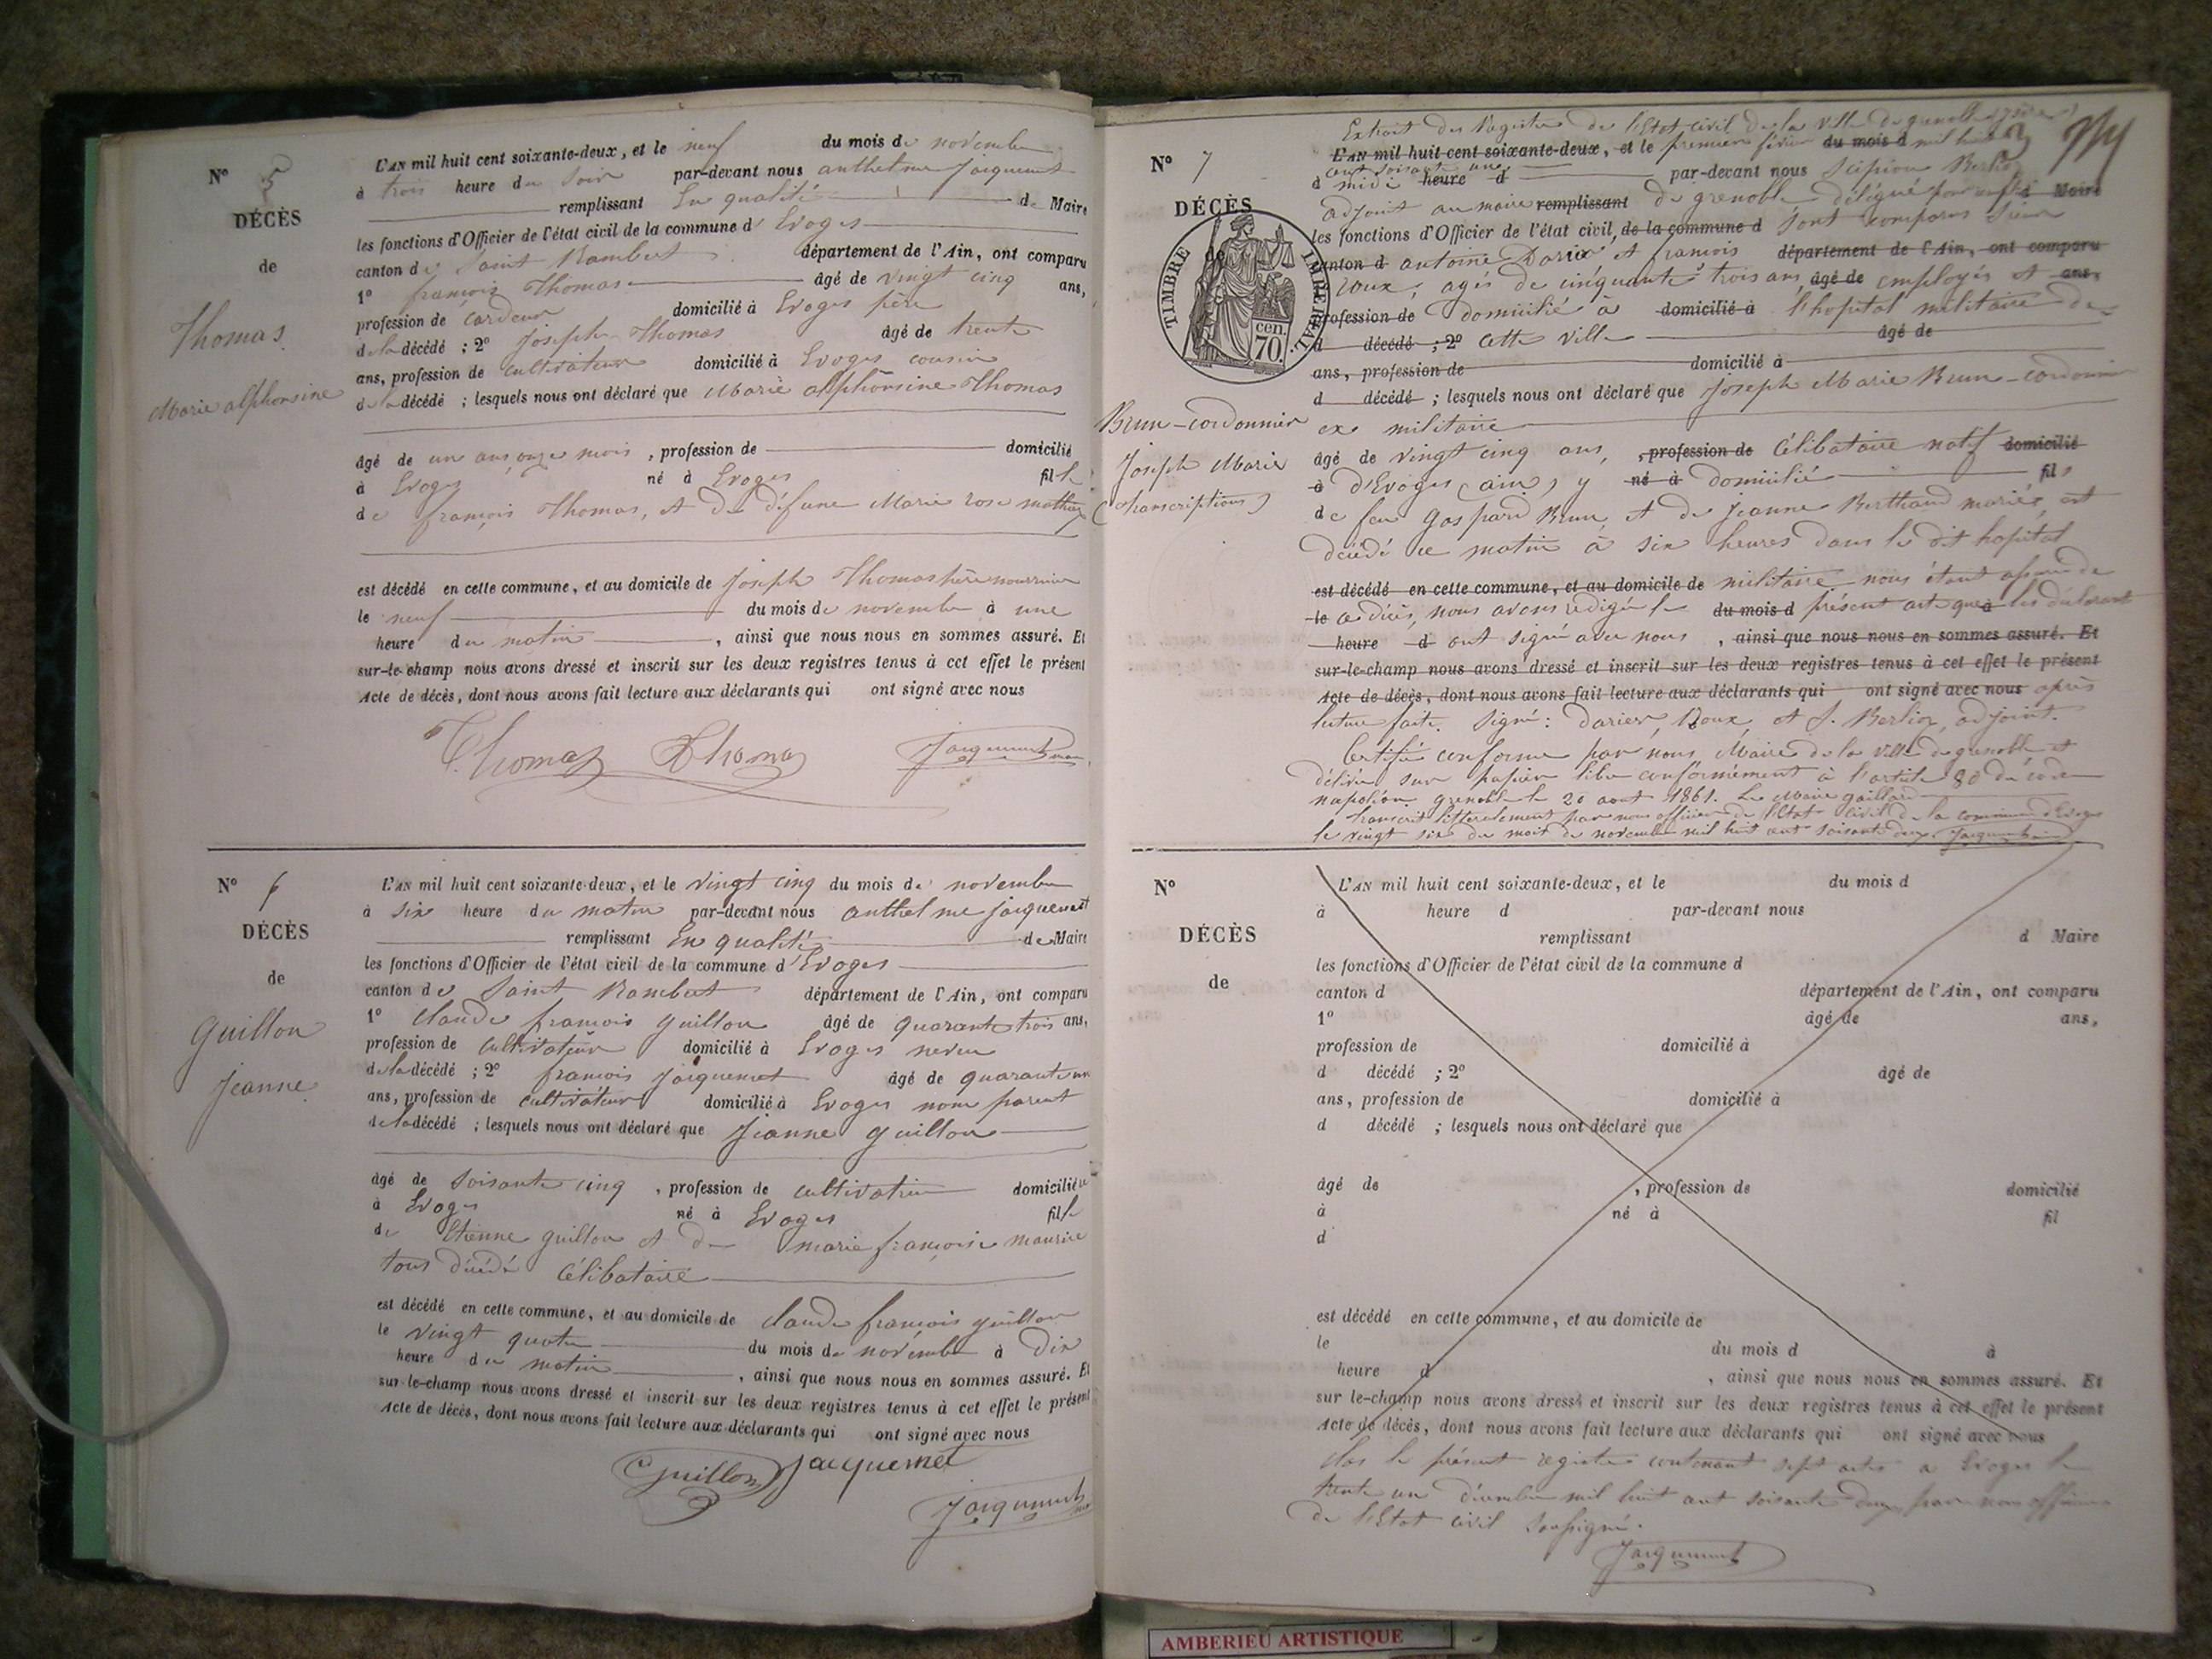 N° 5
DÉCÈS
de
Thomas
Marie alphonsine
L'AN mil huit cent soixante-deux, et le neuf du mois de novembre
à trois heure du soir par-devant nous anthelme Jacquemet
remplissant En qualité de Maire
les fonctions d'Officier de l'état civil de la commune d'Evoges
canton de Saint Rambert département de l'Ain, ont comparu
1° françois Thomas âgé de vingt cinq ans,
profession de cardeur domicilié à Evoges père
de la décédé ; 2° Joseph Thomas âgé de trente
ans, profession de cultivateur domicilié à Evoges cousin
de la décédé ; lesquels nous ont déclaré que Marie alphonsine Thomas
âgé de un ans onze mois , profession de domicilié
à Evoges né à Evoges fille
de françois Thomas, et de défunte Marie rose
est décédé en cette commune, et au domicile de Joseph Thomas père nourricier
le neuf du mois de novembre à une
heure du matin , ainsi que nous nous en sommes assuré. Et
sur-le-champ nous avons dressé et inscrit sur les deux registres tenus à cet effet le présent
Acte de décès, dont nous avons fait lecture aux déclarants qui ont signé avec nous
Thomas Thomas Jacquemet maire
N° 6
DÉCÈS
de
Guillon
Jeanne
L'AN mil huit cent soixante-deux, et le vingt cinq du mois de novembre
à six heure du matin par-devant nous anthelme jacquemet
remplissant En qualité de Maire
les fonctions d'Officier de l'état civil de la commune d'Evoges
canton de Saint Rambert département de l'Ain, ont comparu
1° Claude françois guillon âgé de quarante trois ans,
profession de cultivateur domicilié à Evoges neveu
de la décédé ; 2° françois Jacquemet âgé de quarante un
ans, profession de cultivateur domicilié à Evoges non parent
de la décédé ; lesquels nous ont déclaré que Jeanne guillon
âgé de soisante cinq , profession de cultivatrice domicilié
à Evoges né à Evoges fille
de Etienne guillon et de marie françoise maurice
tous décédé célibataire
est décédé en cette commune, et au domicile de Claude françois guillon
le vingt quatre du mois de novembre à dix
heure du matin , ainsi que nous nous en sommes assuré. Et
sur-le-champ nous avons dressé et inscrit sur les deux registres tenus à cet effet le présent
Acte de décès, dont nous avons fait lecture aux déclarants qui ont signé avec nous
Guillon Jacquemet
Jacquemet
N° 7
DÉCÈS
de
TIMBRE IMPERIAL
70 cen.
Brun-cordonnier
Joseph Marie
(transcription)
Extrait des Registres de l'Etat civil de la ville de grenoble
L'AN mil huit cent soixante-deux, et le premier février du mois d mil huit
cent soisante une
à midi heure d par-devant nous Scipion Berlioz
adjoint au maire remplissant de grenoble délégué pour remplir d Maire
les fonctions d'Officier de l'état civil, de la commune d sont comparus Sieur
canton d antoine Darier et françois département de l'Ain, ont comparu
roux, agés de cinquante trois ans, âgé de employés et ans,
profession de domicilié à domicilié à l'hopital militaire de
d décédé ; 2° cette ville âgé de
ans, profession de domicilié à
d décédé ; lesquels nous ont déclaré que Joseph Marie Brun-cordonnier
ex militaire
âgé de vingt cinq ans, , profession de célibataire natif domicilié
à d'Evoges (ain) y né à domicilié fils
de feu gaspard Brun, et de Jeanne Berthaud mariés, est
décédé ce matin à six heures dans le dit hopital
est décédé en cette commune, et au domicile de militaire nous étant assuré de
le ce décès, nous avons redigé le du mois d présent acte que à les déclarant
heure d ont signé avec nous , ainsi que nous nous en sommes assuré. Et
sur-le-champ nous avons dressé et inscrit sur les deux registres tenus à cet effet le présent
Acte de décès, dont nous avons fait lecture aux déclarants qui ont signé avec nous après
lecture faite. Signé : Darier, Roux, et S. Berlioz, adjoint.
Certifié conforme par nous Maire de la ville de grenoble et
délivré sur papier libre conformément à l'article 80 du code
napoléon grenoble le 20 aout 1861. Le Maire gaillard
transcrit littéralement par nous officier de l'Etat civil de la commune d'Evoges
le vingt six du mois de novembre mil huit cent soisante deux. Jacquemet
N°
DÉCÈS
de
L'AN mil huit cent soixante-deux, et le du mois d
à heure d par-devant nous
remplissant d Maire
les fonctions d'Officier de l'état civil de la commune d
canton d département de l'Ain, ont comparu
1° âgé de ans,
profession de domicilié à
d décédé ; 2° âgé de
ans, profession de domicilié à
d décédé ; lesquels nous ont déclaré que
âgé de , profession de domicilié
à né à fil
d
est décédé en cette commune, et au domicile de
le du mois d à
heure d , ainsi que nous nous en sommes assuré. Et
sur le-champ nous avons dressé et inscrit sur les deux registres tenus à cet effet le présent
Acte de décès, dont nous avons fait lecture aux déclarants qui ont signé avec nous
Clos le présent registre contenant sept actes a Evoges le
trente un décembre mil huit cent soisante deux par nous officier
de l'Etat civil soussigné.
Jacquemet
AMBERIEU ARTISTIQUE